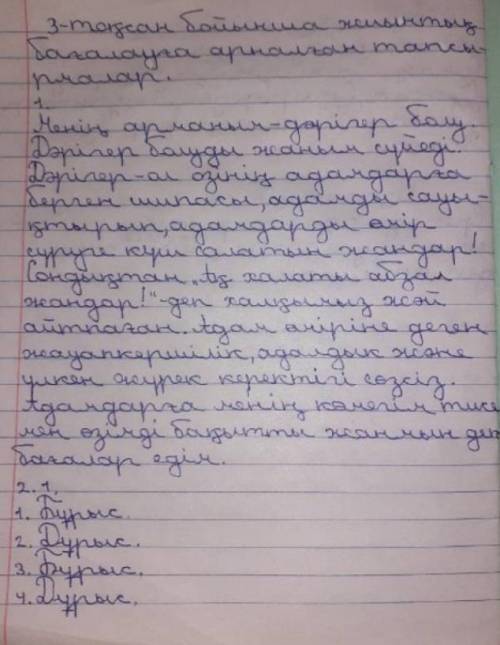 3-тоқсан бойынша жиынтық
бағалауға арналған тапсы-
рмалар.
1.
Менің арманым-дәрігер болу.
Дәрігер болуды жаным сүйеді.
Дәрігер-ол өзінің адамдарға
берген шипасы, адамды сауы-
қтырып, адамдарды өмір
сүруге күш салатын жандар!
Сондықтан „Ақ халаты абзал
жандар!"-деп халқымыз жәй
айтпаған. Адам өміріне деген
жауапкершілік, адалдық және
үлкен жүрек керектігі сөзсіз.
Адамдарға менің көмегім тисе
мен өзімді бақытты жанмын деп
бағалар едім.
2. 1.
1. Бұрыс.
2. Дұрыс.
3. Бұрыс.
4. Дұрыс.